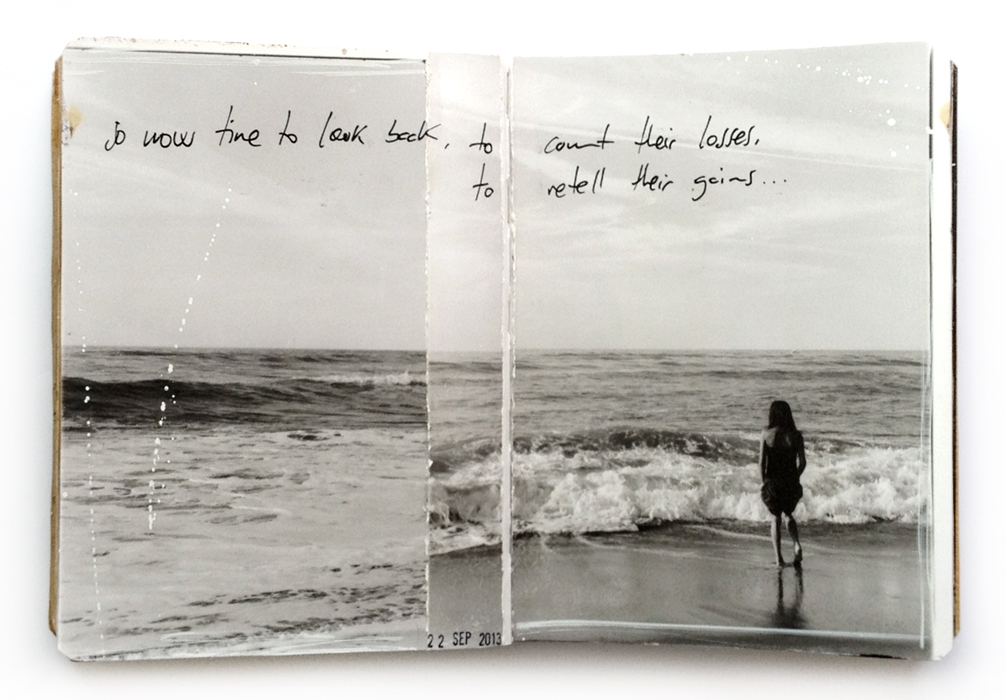 so now time to look back, to count their losses,
to retell their gains...
22 SEP 2013